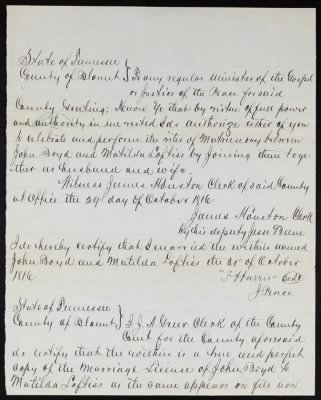 State of Tennessee
County of Blount } To any regular Minister of the Gospel
or Justice of the Peace for said
County Greeting: Know Ye that by virtue of full power
and authority in me vested I do authorize either of you
to celebrate and perform the rites of Matrimony between
John Boyd and Matilda Loftiss by joining them toge-
ther as husband and wife.
Witness James Houston Clerk of said County
at Office the 29th day of October 1816
James Houston Clerk
By his deputy Jesse Beene
I do hereby certify that I married the within named
John Boyd and Matilda Loftiss the 31st of October
1816
"S Harris"
J. Peace
State of Tennessee
County of Blount } I, J. A. Greer Clerk of the County
Court for the County aforesaid
do certify that the within is a true and perfect
copy of the Marriage License of John Boyd to
Matilda Loftiss as the same appears on file now